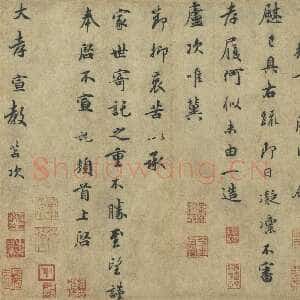 慰已具右疏即日凝凜不審
孝履何似未由一造
廬次唯冀
節抑哀苦以承
家世寄託之重不勝至望謹
奉啓不宣 頓首上啓
大孝宣教 苫次
Shufawang.CN